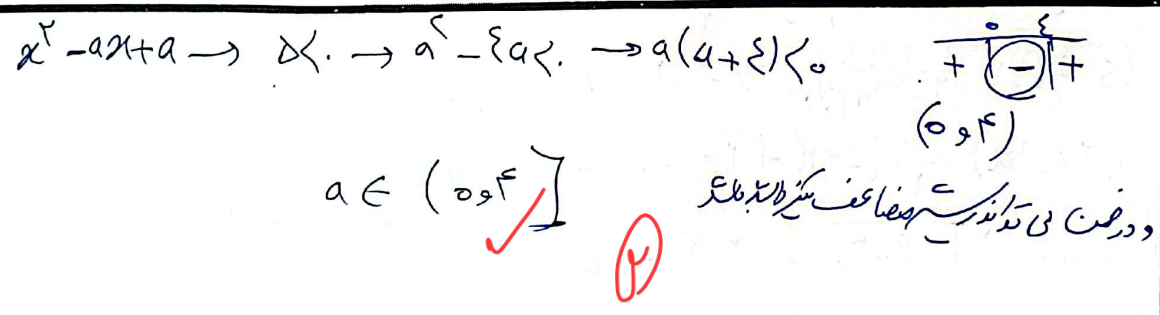 x² - ax + a → Δ<۰ → a² - ٤a<۰ → a(a+٤)<۰
۰ ٤
+ - +
(۰ و ۴)
a ∈ (۰ و ۴]
و در ضمن می تواند ریشه مضاعف نیز داشته باشد
۲